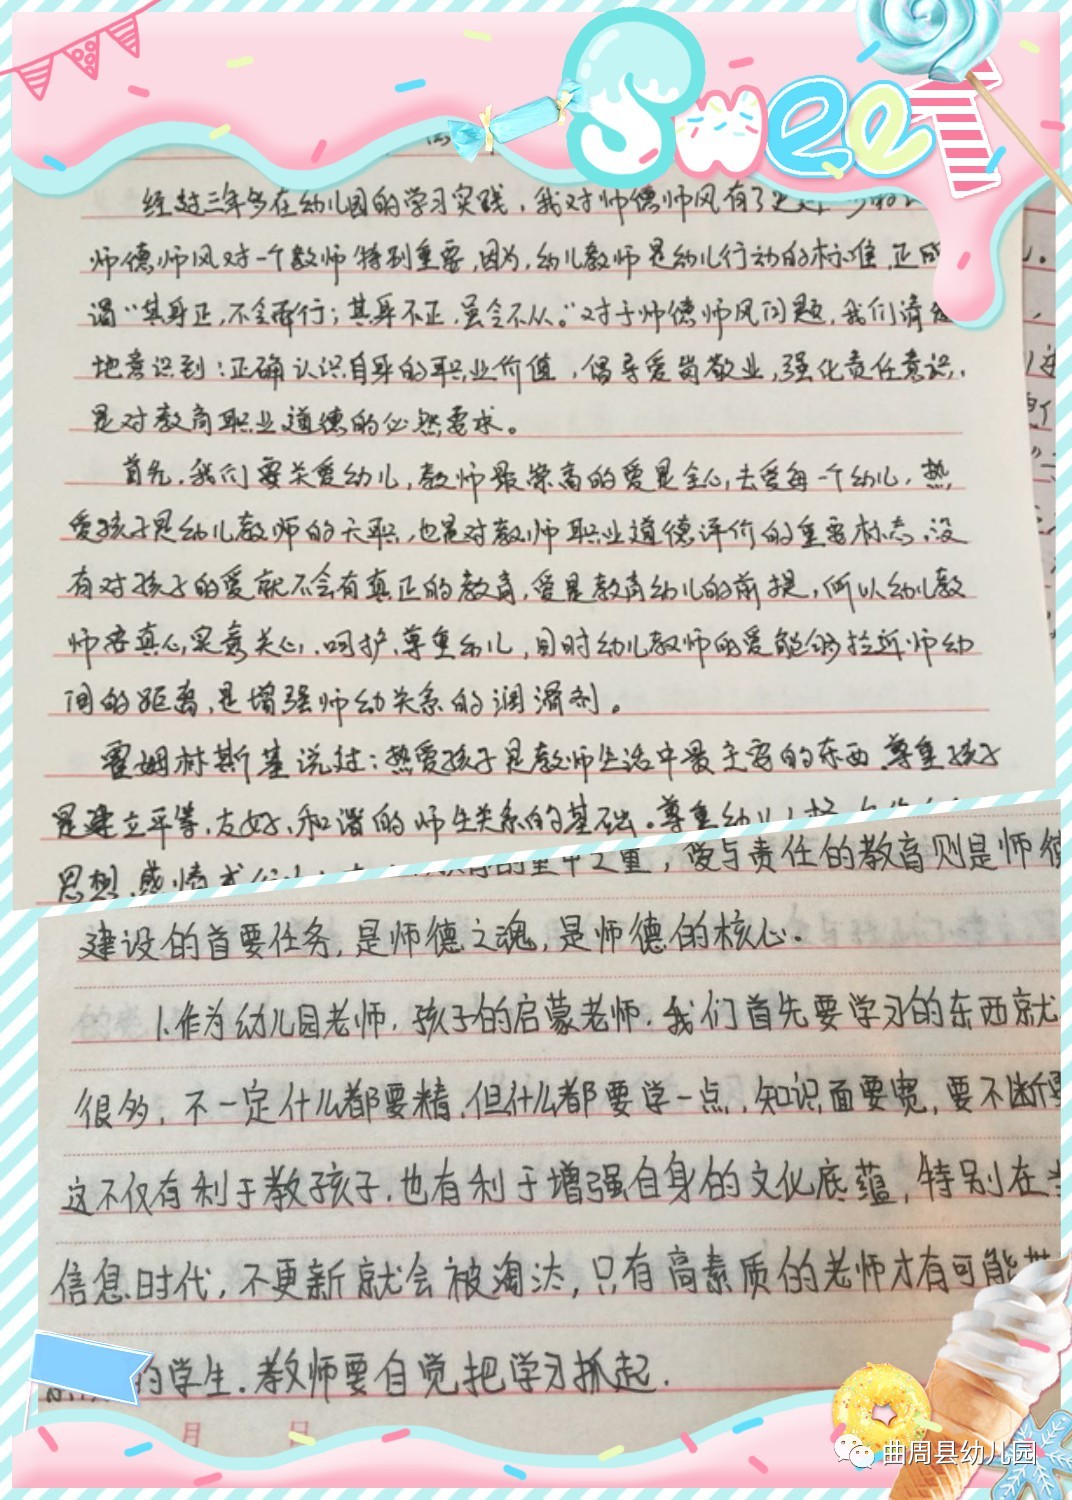 Sweet
经过三年多在幼儿园的学习实践,我对师德师风有了更
师德师风对一个教师特别重要,因为,幼儿教师是幼儿行动的标准,正所
谓“其身正,不令而行;其身不正,虽令不从。”对于师德师风问题,我们清楚
地意识到:正确认识自身的职业价值,倡导爱岗敬业,强化责任意识,
是对教育职业道德的必然要求。
首先,我们要关爱幼儿,教师最崇高的爱是全心去爱每一个幼儿,热
爱孩子是幼儿教师的天职,也是对教师职业道德评价的重要标志,没
有对孩子的爱就不会有真正的教育,爱是教育幼儿的前提,所以幼儿教
师要真心实意关心、呵护、尊重幼儿,同时幼儿教师的爱能够拉近师幼
间的距离,是增强师幼关系的润滑剂。
霍姆林斯基说过:热爱孩子是教师生活中最主要的东西.尊重孩子
是建立平等、友好、和谐的师生关系的基础。尊重幼儿人格
思想、感情或行
的重中之重,爱与责任的教育则是师德
建设的首要任务,是师德之魂,是师德的核心.
1.作为幼儿园老师,孩子的启蒙老师,我们首先要学习的东西就
很多,不一定什么都要精,但什么都要学一点,知识面要宽,要不断
这不仅有利于教孩子,也有利于增强自身的文化底蕴,特别在
信息时代,不更新就会被淘汰,只有高素质的老师才有可能
的学生.教师要自觉把学习抓起.
月 日
曲周县幼儿园